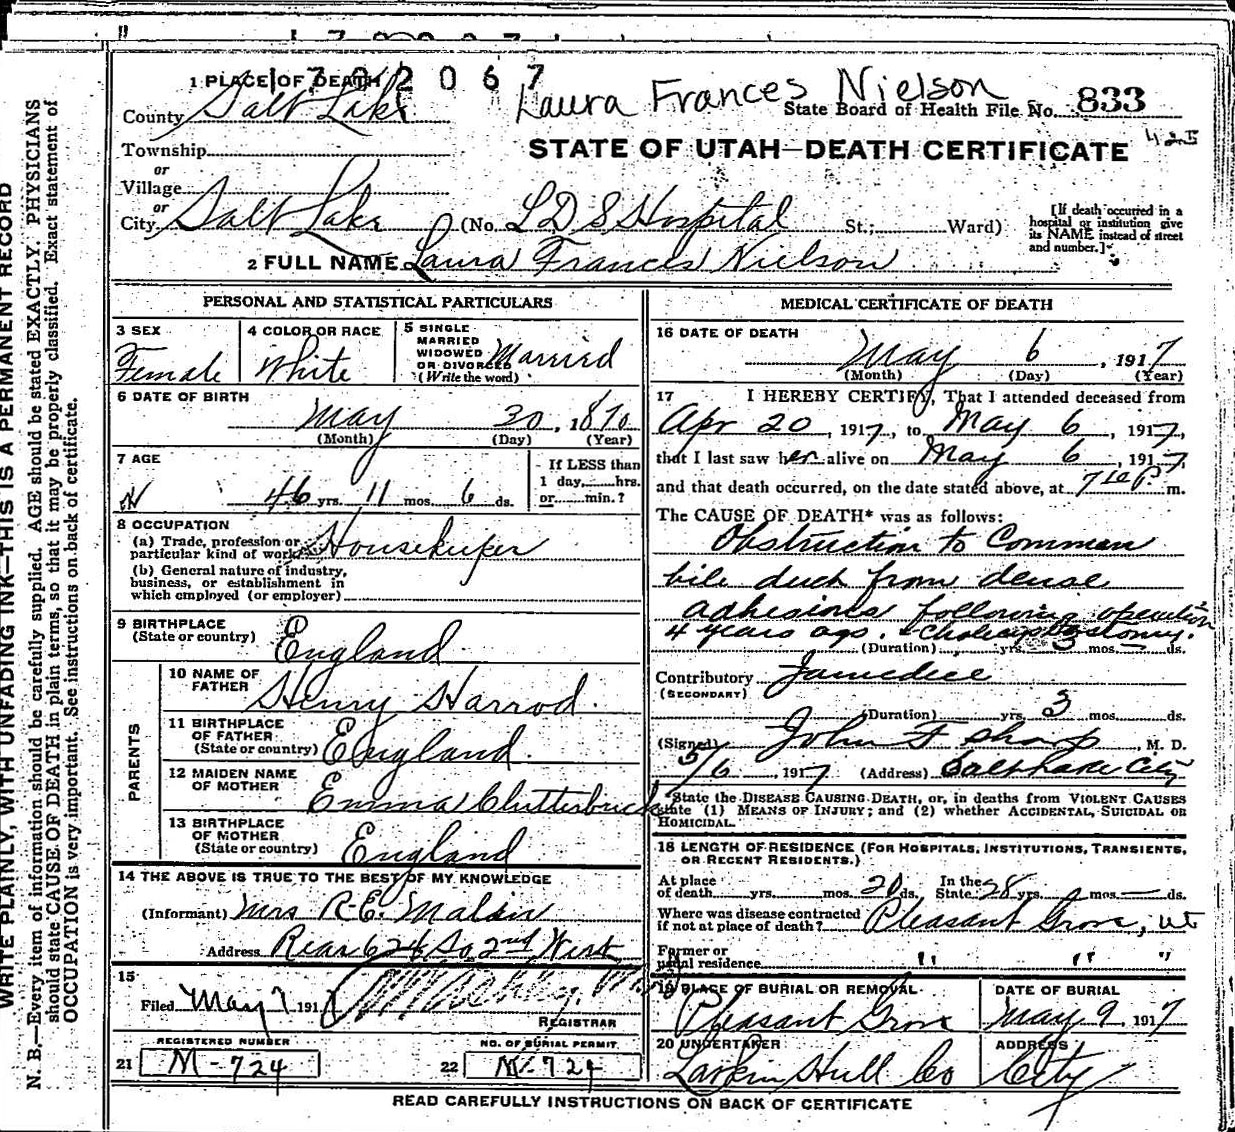 1 PLACE OF DEATH
1 7 3 2 0 6 7
Laura Frances Nielson
County Salt Lake
State Board of Health File No. 833
Township
STATE OF UTAH—DEATH CERTIFICATE
425
or
Village
or
City Salt Lake (No. L D S Hospital St.; Ward)
[If death occurred in a
hospital or institution give
its NAME instead of street
and number.]
2 FULL NAME Laura Frances Nielson
PERSONAL AND STATISTICAL PARTICULARS
3 SEX
Female
4 COLOR OR RACE
White
5 SINGLE
MARRIED
WIDOWED
OR DIVORCED
(Write the word)
Married
6 DATE OF BIRTH
May 30, 1870
(Month) (Day) (Year)
7 AGE
46 yrs. 11 mos. 6 ds.
If LESS than
1 day, hrs.
or min.?
8 OCCUPATION
(a) Trade, profession or
particular kind of work Housekeeper
(b) General nature of industry,
business, or establishment in
which employed (or employer)
9 BIRTHPLACE
(State or country) England
PARENTS
10 NAME OF
FATHER Henry Harrod.
11 BIRTHPLACE
OF FATHER
(State or country) England.
12 MAIDEN NAME
OF MOTHER Emma Clutterbuck
13 BIRTHPLACE
OF MOTHER
(State or country) England
14 THE ABOVE IS TRUE TO THE BEST OF MY KNOWLEDGE
(Informant) Mrs R.E.
Address Rear 624 So. 2nd West
15
Filed May 7 191
REGISTRAR
REGISTERED NUMBER
21 M-724
NO. OF BURIAL PERMIT
22 M-724
MEDICAL CERTIFICATE OF DEATH
16 DATE OF DEATH
May 6, 1917
(Month) (Day) (Year)
17 I HEREBY CERTIFY, That I attended deceased from
Apr 20, 1917, to May 6, 1917,
that I last saw her alive on May 6, 1917,
and that death occurred, on the date stated above, at 7 P m.
The CAUSE OF DEATH* was as follows:
Obstruction to Common
bile duct from dense
adhesions following operation
4 years ago. - Cholecystostomy.
(Duration) yrs. 3 mos. — ds.
Contributory Jaundice
(SECONDARY)
(Duration) yrs. 3 mos. ds.
(Signed) John F Sharp, M. D.
5/6, 1917 (Address) Salt Lake City
*State the DISEASE CAUSING DEATH, or, in deaths from VIOLENT CAUSES
state (1) MEANS OF INJURY; and (2) whether ACCIDENTAL, SUICIDAL OR
HOMICIDAL.
18 LENGTH OF RESIDENCE (FOR HOSPITALS, INSTITUTIONS, TRANSIENTS,
OR RECENT RESIDENTS.)
At place
of death yrs. mos. 20 ds. In the
State 28 yrs. mos. — ds.
Where was disease contracted
if not at place of death? Pleasant Grove, Ut
Former or
usual residence " " "
19 PLACE OF BURIAL OR REMOVAL
Pleasant Grove
DATE OF BURIAL
May 9, 1917
20 UNDERTAKER
Larkin Hull Co
ADDRESS
City
READ CAREFULLY INSTRUCTIONS ON BACK OF CERTIFICATE
WRITE PLAINLY, WITH UNFADING INK—THIS IS A PERMANENT RECORD
N. B.—Every item of information should be carefully supplied. AGE should be stated EXACTLY. PHYSICIANS
should state CAUSE OF DEATH in plain terms, so that it may be properly classified. Exact statement of
OCCUPATION is very important. See instructions on back of certificate.